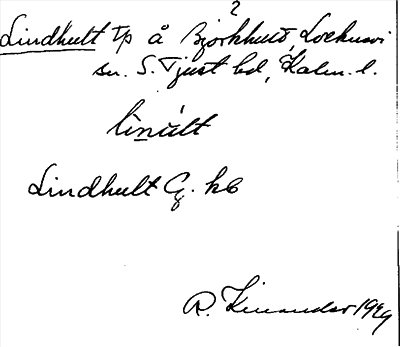 ?
Lindhult tp å Björkhult, Lockneви
sn. S. Tjust hd, Kalm. l.
linult
Lindhult G. kb
R. Kinander 1929